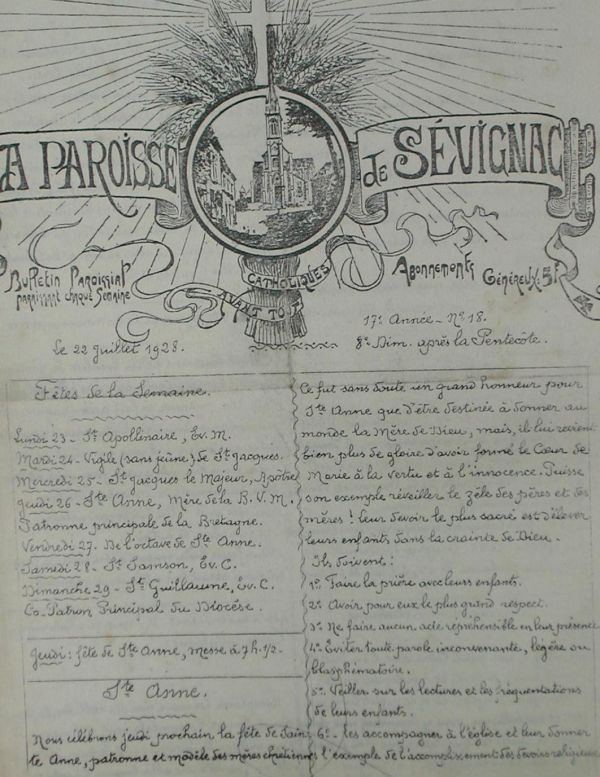 A PAROISSE de SÉVIGNAC
Bulletin Paroissial
paraissant chaque Semaine
CATHOLIQUES
AVANT TOUT
Abonnements
Généreux: 5f
Le 22 Juillet 1928.
17e Année - No 18.
8e Dim. après la Pentecôte.
Fêtes de la Semaine.
Lundi 23 - St Apollinaire, Ev. M.
Mardi 24 - Vigile (sans jeûne) de St Jacques.
Mercredi 25 - St Jacques le Majeur, Apôtre
Jeudi 26 - Ste Anne, Mère de la B. V. M.
Patronne principale de la Bretagne.
Vendredi 27. De l'octave de Ste Anne.
Samedi 28 - St Samson, Ev. C.
Dimanche 29 - St Guillaume, Ev. C.
Co-Patron Principal du Diocèse.
Jeudi: fête de Ste Anne, messe à 7h. 1/2.
Ste Anne.
Nous célébrons jeudi prochain la fête de Sain
te Anne, patronne et modèle des mères chrétiennes
Ce fut sans doute un grand honneur pour
Ste Anne que d'être destinée à donner au
monde la Mère de Dieu, mais, il lui revient
bien plus de gloire d'avoir formé le Cœur de
Marie à la vertu et à l'innocence. Puisse
son exemple réveiller le zèle des pères et des
mères! leur devoir le plus sacré est d'élever
leurs enfants dans la crainte de Dieu.
Ils doivent:
1o. Faire la prière avec leurs enfants.
2o. Avoir pour eux le plus grand respect.
3o. Ne faire aucun acte répréhensible en leur présence
4o. Éviter toute parole inconvenante, légère ou
blasphématoire.
5o. Veiller sur les lectures et les fréquentations
de leurs enfants.
6o. - les accompagner à l'église et leur donner
l'exemple de l'accomplissement des devoirs religieux